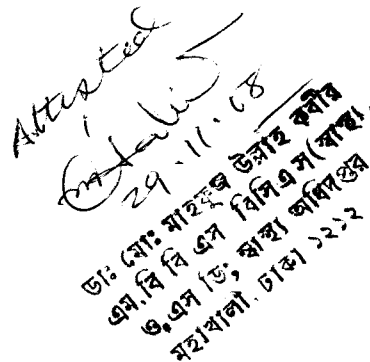 Attested
29.11.08
ডাঃ মোঃ মাহফুজ উল্লাহ কবীর
এম.বি বি এস বিসিএস (স্বাস্থ্য)
ও,এস ডি, স্বাস্থ্য অধিদপ্তর
মহাখালী, ঢাকা ১২১২